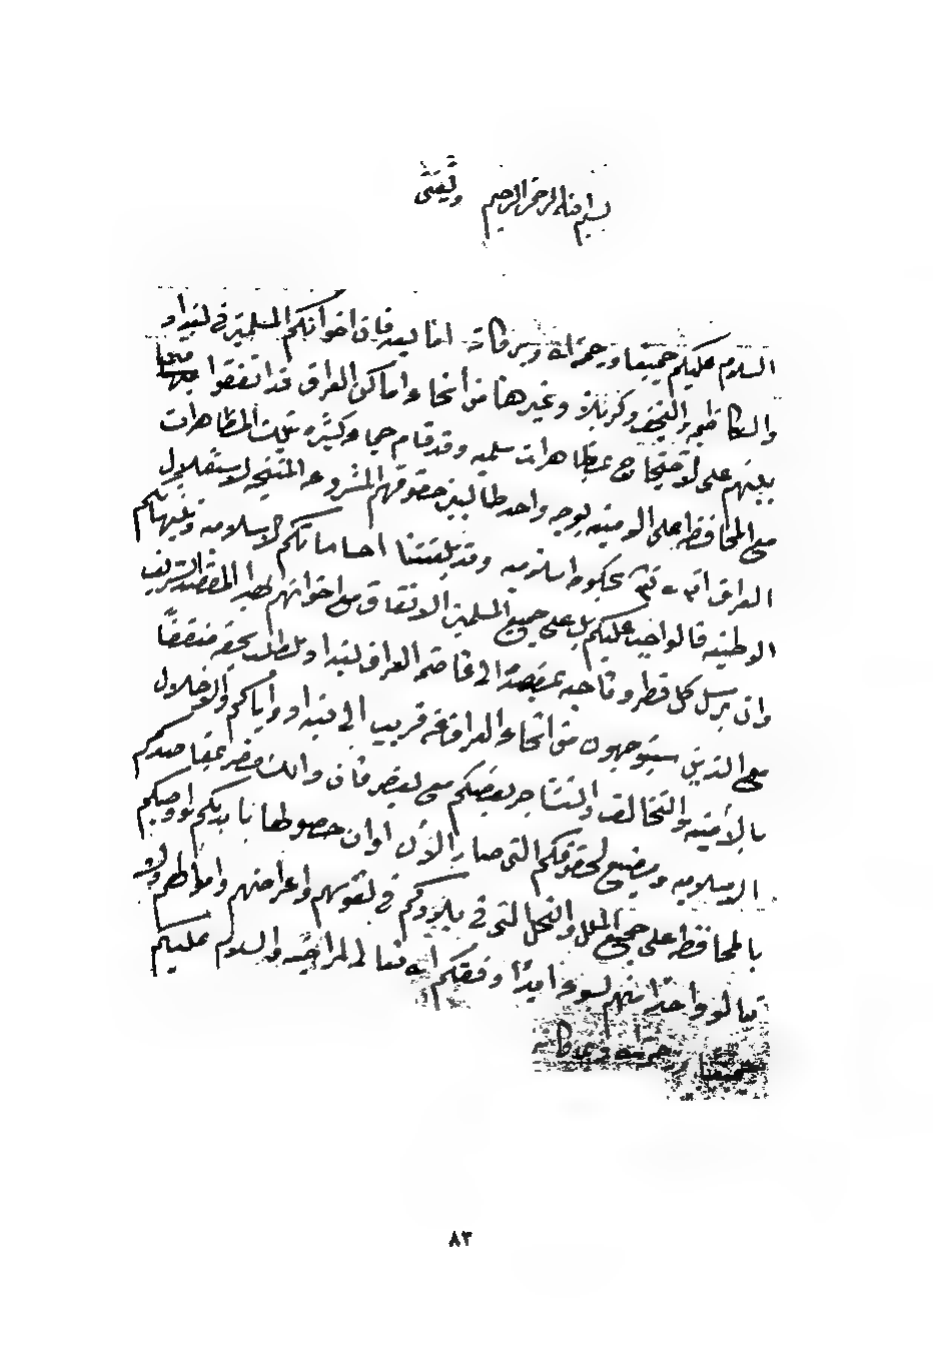 بسم الله الرحمن الرحيم وثقتى
السلام عليكم جميعا ورحمة الله وبركاته اما بعد فان اخوانكم المسلمين في بغداد
والكاظميه والنجف وكربلاء وغيرها من أنحاء اماكن العراق قد اتفقوا فيما
بينهم على الاحتجاج بمظاهرات سلميه وقد قام جماعه كثيره بتلك المظاهرات
مع المحافظه على الامنيه بوجه واحد طالبين حقوقهم المشروعه المنتجه لاستقلال
العراق انشاء بحكومه اسلاميه وقد بلغتنا احساساتكم الاسلاميه وتنبهاتكم
الوطنيه فالواجب عليكم بل على جميع المسلمين الاتفاق مع اخوانهم بهذا المقصد الشريف
وان يرسل كل قطر وناحيه بمقصده الى عاصمه العراق بغداد وللطلب بحقه متفقا
مع الذين سيتوجهون من انحاء العراق عن قريب الى بغداد واياكم والاخلال
بالأمنيه والتخالف والتشاجر بعضكم مع بعض فان ذلك مضر بمقاصدكم
الاسلاميه ومضيع لحقوقكم التي صار الأن اوان حصولها بايديكم واوصيكم
بالمحافظه على جميع الملل والنحل التي في بلادكم في نفوسهم واعراضهم واموالهم ولا
تنالوا واحدًا منهم بسوء ابدًا وفقكم الله تعالى لمراضيه والسلام عليكم
جميعا ورحمة الله وبركاته
٨٣